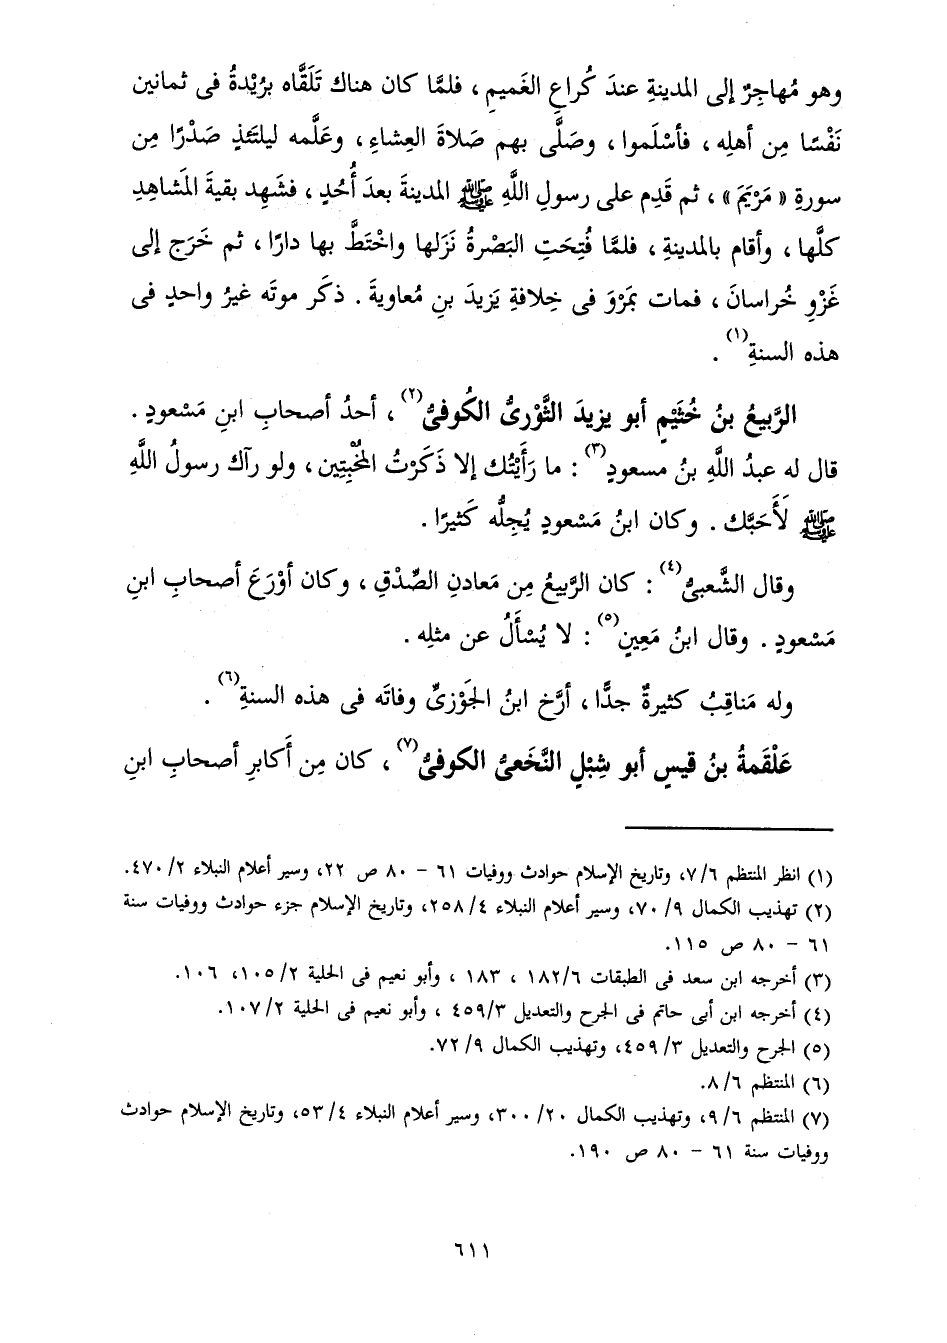 وهو مُهاجِرٌ إلى المدينةِ عندَ كُراعِ الغَميمِ ، فلمَّا كان هناك تَلَقَّاه بُرَيْدةُ فى ثمانين
نَفْسًا مِن أهلِه ، فأسْلَموا ، وصَلَّى بهم صَلاةَ العِشاءِ ، وعَلَّمه ليلتَئذٍ صَدْرًا مِن
سورةِ « مَرْيَمَ » ، ثم قَدِم على رسولِ اللَّهِ ﷺ المدينةَ بعدَ أُحُدٍ ، فشَهِد بقيةَ المَشاهِدِ
كلَّها ، وأقام بالمدينةِ ، فلمَّا فُتِحَتِ البَصْرةُ نَزَلها واخْتَطَّ بها دارًا ، ثم خَرَج إلى
غَزْوِ خُراسانَ ، فمات بمَرْوَ فى خِلافةِ يَزيدَ بنِ مُعاويةَ . ذكَر موتَه غيرُ واحدٍ فى
هذه السنةِ(١) .
الرَّبيعُ بنُ خُثَيْمٍ أبو يزيدَ الثَّوْرىُّ الكُوفىُّ(٢) ، أحدُ أصحابِ ابنِ مَسْعودٍ .
قال له عبدُ اللَّهِ بنُ مسعودٍ(٣) : ما رَأَيْتُك إلا ذَكَرْتُ المُخْبِتِين ، ولو رآك رسولُ اللَّهِ
ﷺ لَأَحَبَّك . وكان ابنُ مَسْعودٍ يُجِلُّه كَثيرًا .
وقال الشَّعبىُّ(٤) : كان الرَّبيعُ مِن مَعادنِ الصِّدْقِ ، وكان أوْرَعَ أصحابِ ابنِ
مَسْعودٍ . وقال ابنُ مَعِينٍ(٥) : لا يُسْأَلُ عن مثلِه .
وله مَناقِبُ كثيرةٌ جدًّا ، أرَّخ ابنُ الجَوْزىِّ وفاتَه فى هذه السنةِ(٦) .
عَلْقَمةُ بنُ قيسٍ أبو شِبْلٍ النَّخَعىُّ الكوفىُّ(٧) ، كان مِن أَكابرِ أصحابِ ابنِ
(١) انظر المنتظم ٦/٧، وتاريخ الإسلام حوادث ووفيات ٦١ - ٨٠ ص ٢٢، وسير أعلام النبلاء ٢/ ٤٧٠.
(٢) تهذيب الكمال ٩/ ٧٠، وسير أعلام النبلاء ٤/ ٢٥٨، وتاريخ الإسلام جزء حوادث ووفيات سنة
٦١ - ٨٠ ص ١١٥.
(٣) أخرجه ابن سعد فى الطبقات ٦/ ١٨٢ ، ١٨٣ ، وأبو نعيم فى الحلية ٢/ ١٠٥، ١٠٦.
(٤) أخرجه ابن أبى حاتم فى الجرح والتعديل ٣/ ٤٥٩ ، وأبو نعيم فى الحلية ٢/ ١٠٧.
(٥) الجرح والتعديل ٣/ ٤٥٩، وتهذيب الكمال ٩/ ٧٢.
(٦) المنتظم ٦/ ٨.
(٧) المنتظم ٦/ ٩، وتهذيب الكمال ٢٠/ ٣٠٠، وسير أعلام النبلاء ٤/ ٥٣، وتاريخ الإسلام حوادث
ووفيات سنة ٦١ - ٨٠ ص ١٩٠.
٦١١